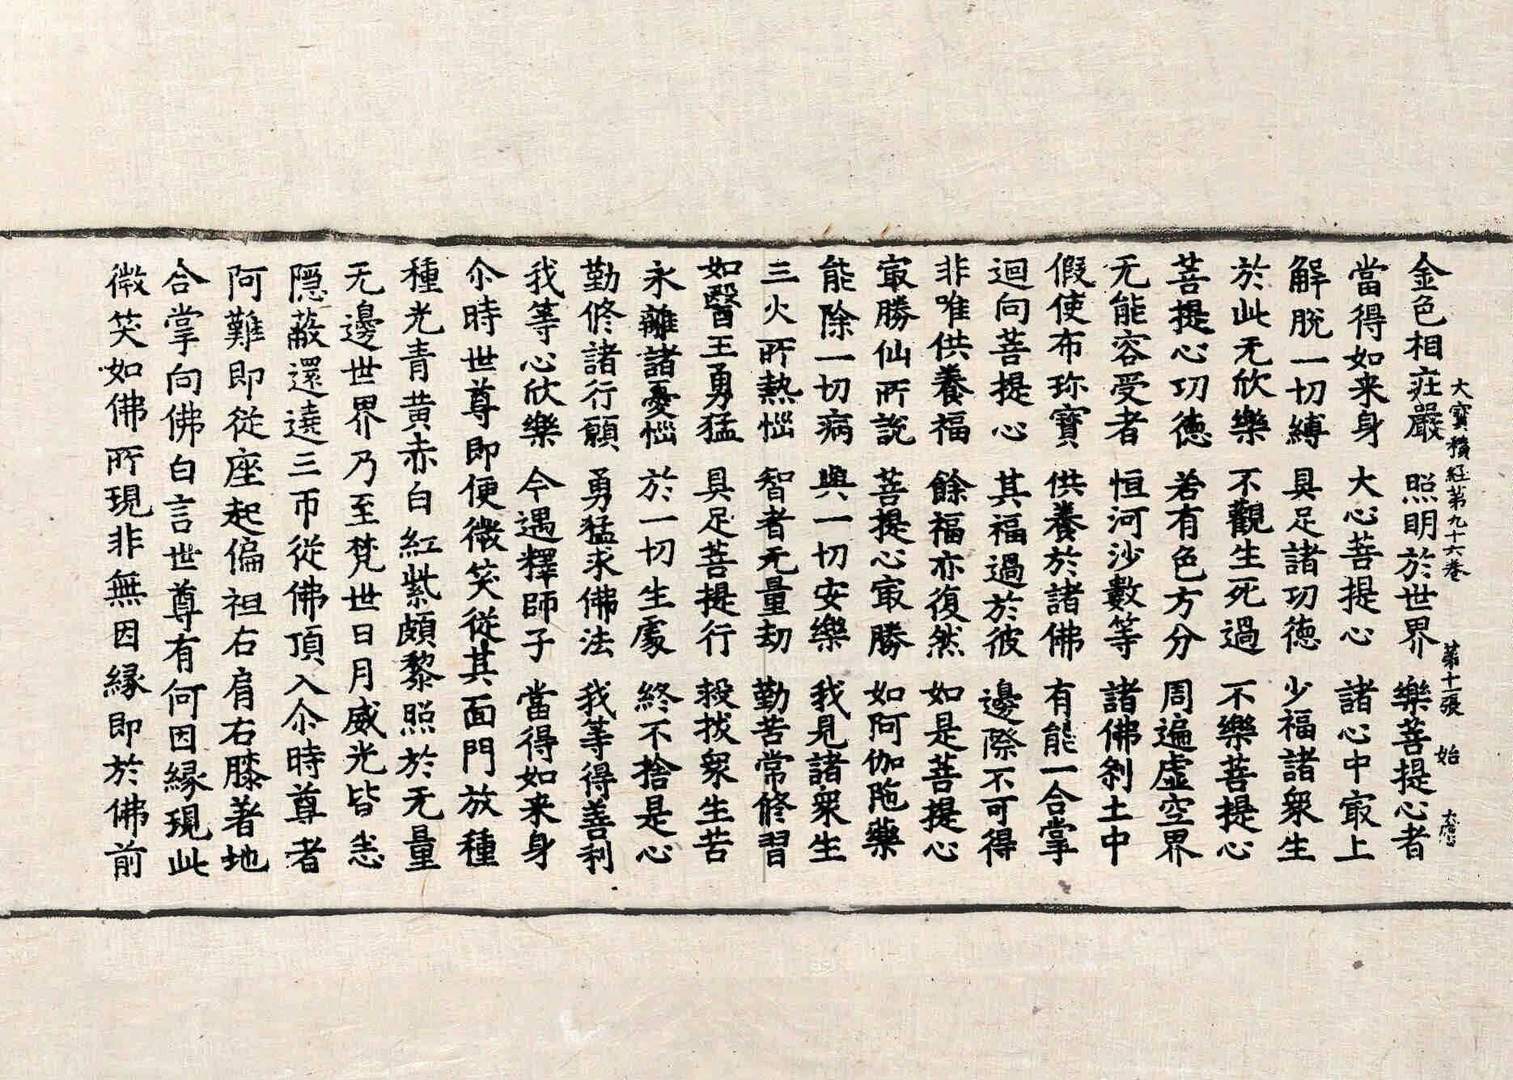 大寶積經第九十六卷 第十一張 始
金色相莊嚴 照明於世界 樂菩提心者
當得如来身 大心菩提心 諸心中㝡上
解脫一切縛 具足諸功德 少福諸衆生
於此无欣樂 不觀生死過 不樂菩提心
菩提心功德 若有色方分 周遍虛空界
无能容受者 恒河沙數等 諸佛剎土中
假使布珎寶 供養於諸佛 有能一合掌
迴向菩提心 其福過於彼 邊際不可得
非唯供養福 餘福亦復然 如是菩提心
㝡勝仙所說 菩提心㝡勝 如阿伽陁藥
能除一切病 與一切安樂 我見諸衆生
三火所熱惱 智者无量劫 勤苦常修習
如醫王勇猛 具足菩提行 救拔衆生苦
永離諸憂惱 於一切生處 終不捨是心
勤修諸行願 勇猛求佛法 我等得善利
我等心欣樂 今遇釋師子 當得如来身
尒時世尊即便微笑從其面門放種
種光青黄赤白紅紫頗黎照於无量
无邊世界乃至梵世日月威光皆悉
隱蔽還遶三帀從佛頂入尒時尊者
阿難即從座起偏袒右肩右膝著地
合掌向佛白言世尊有何因緣現此
微笑如佛所現非無因緣即於佛前